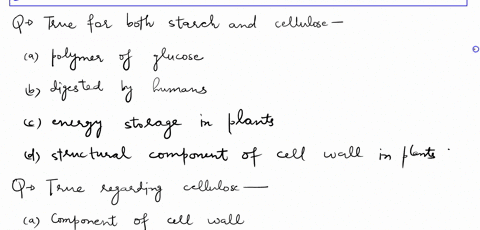 Q→ True for both starch and cellulose—
(a) polymer of glucose
(b) digested by humans
(c) energy storage in plants
(d) structural component of cell wall in plants.
Q→ True regarding cellulose—
(a) Component of cell wall